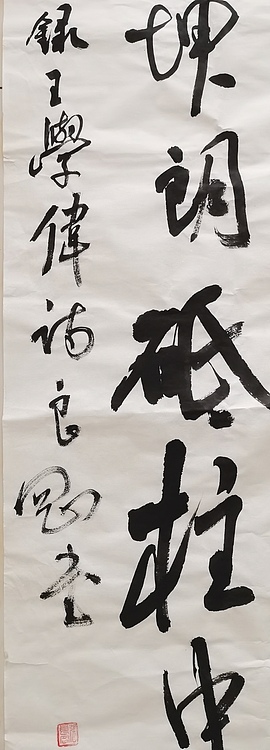 坤朗砥柱中
錄王學偉詩良書